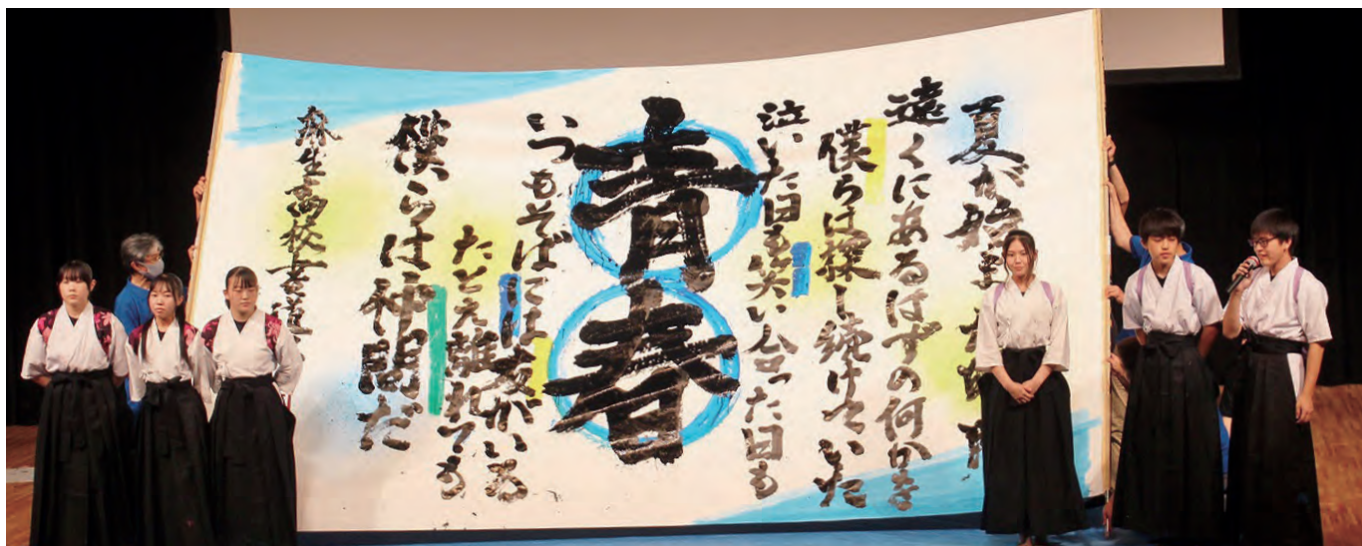 夏が始ま
遠くにあるはずの何かを
僕らは探し続けていた
泣いた日も笑い合った日も
青春
いつもそばには友がいる
たとえ離れても
僕らは仲間だ
麻生高校書道